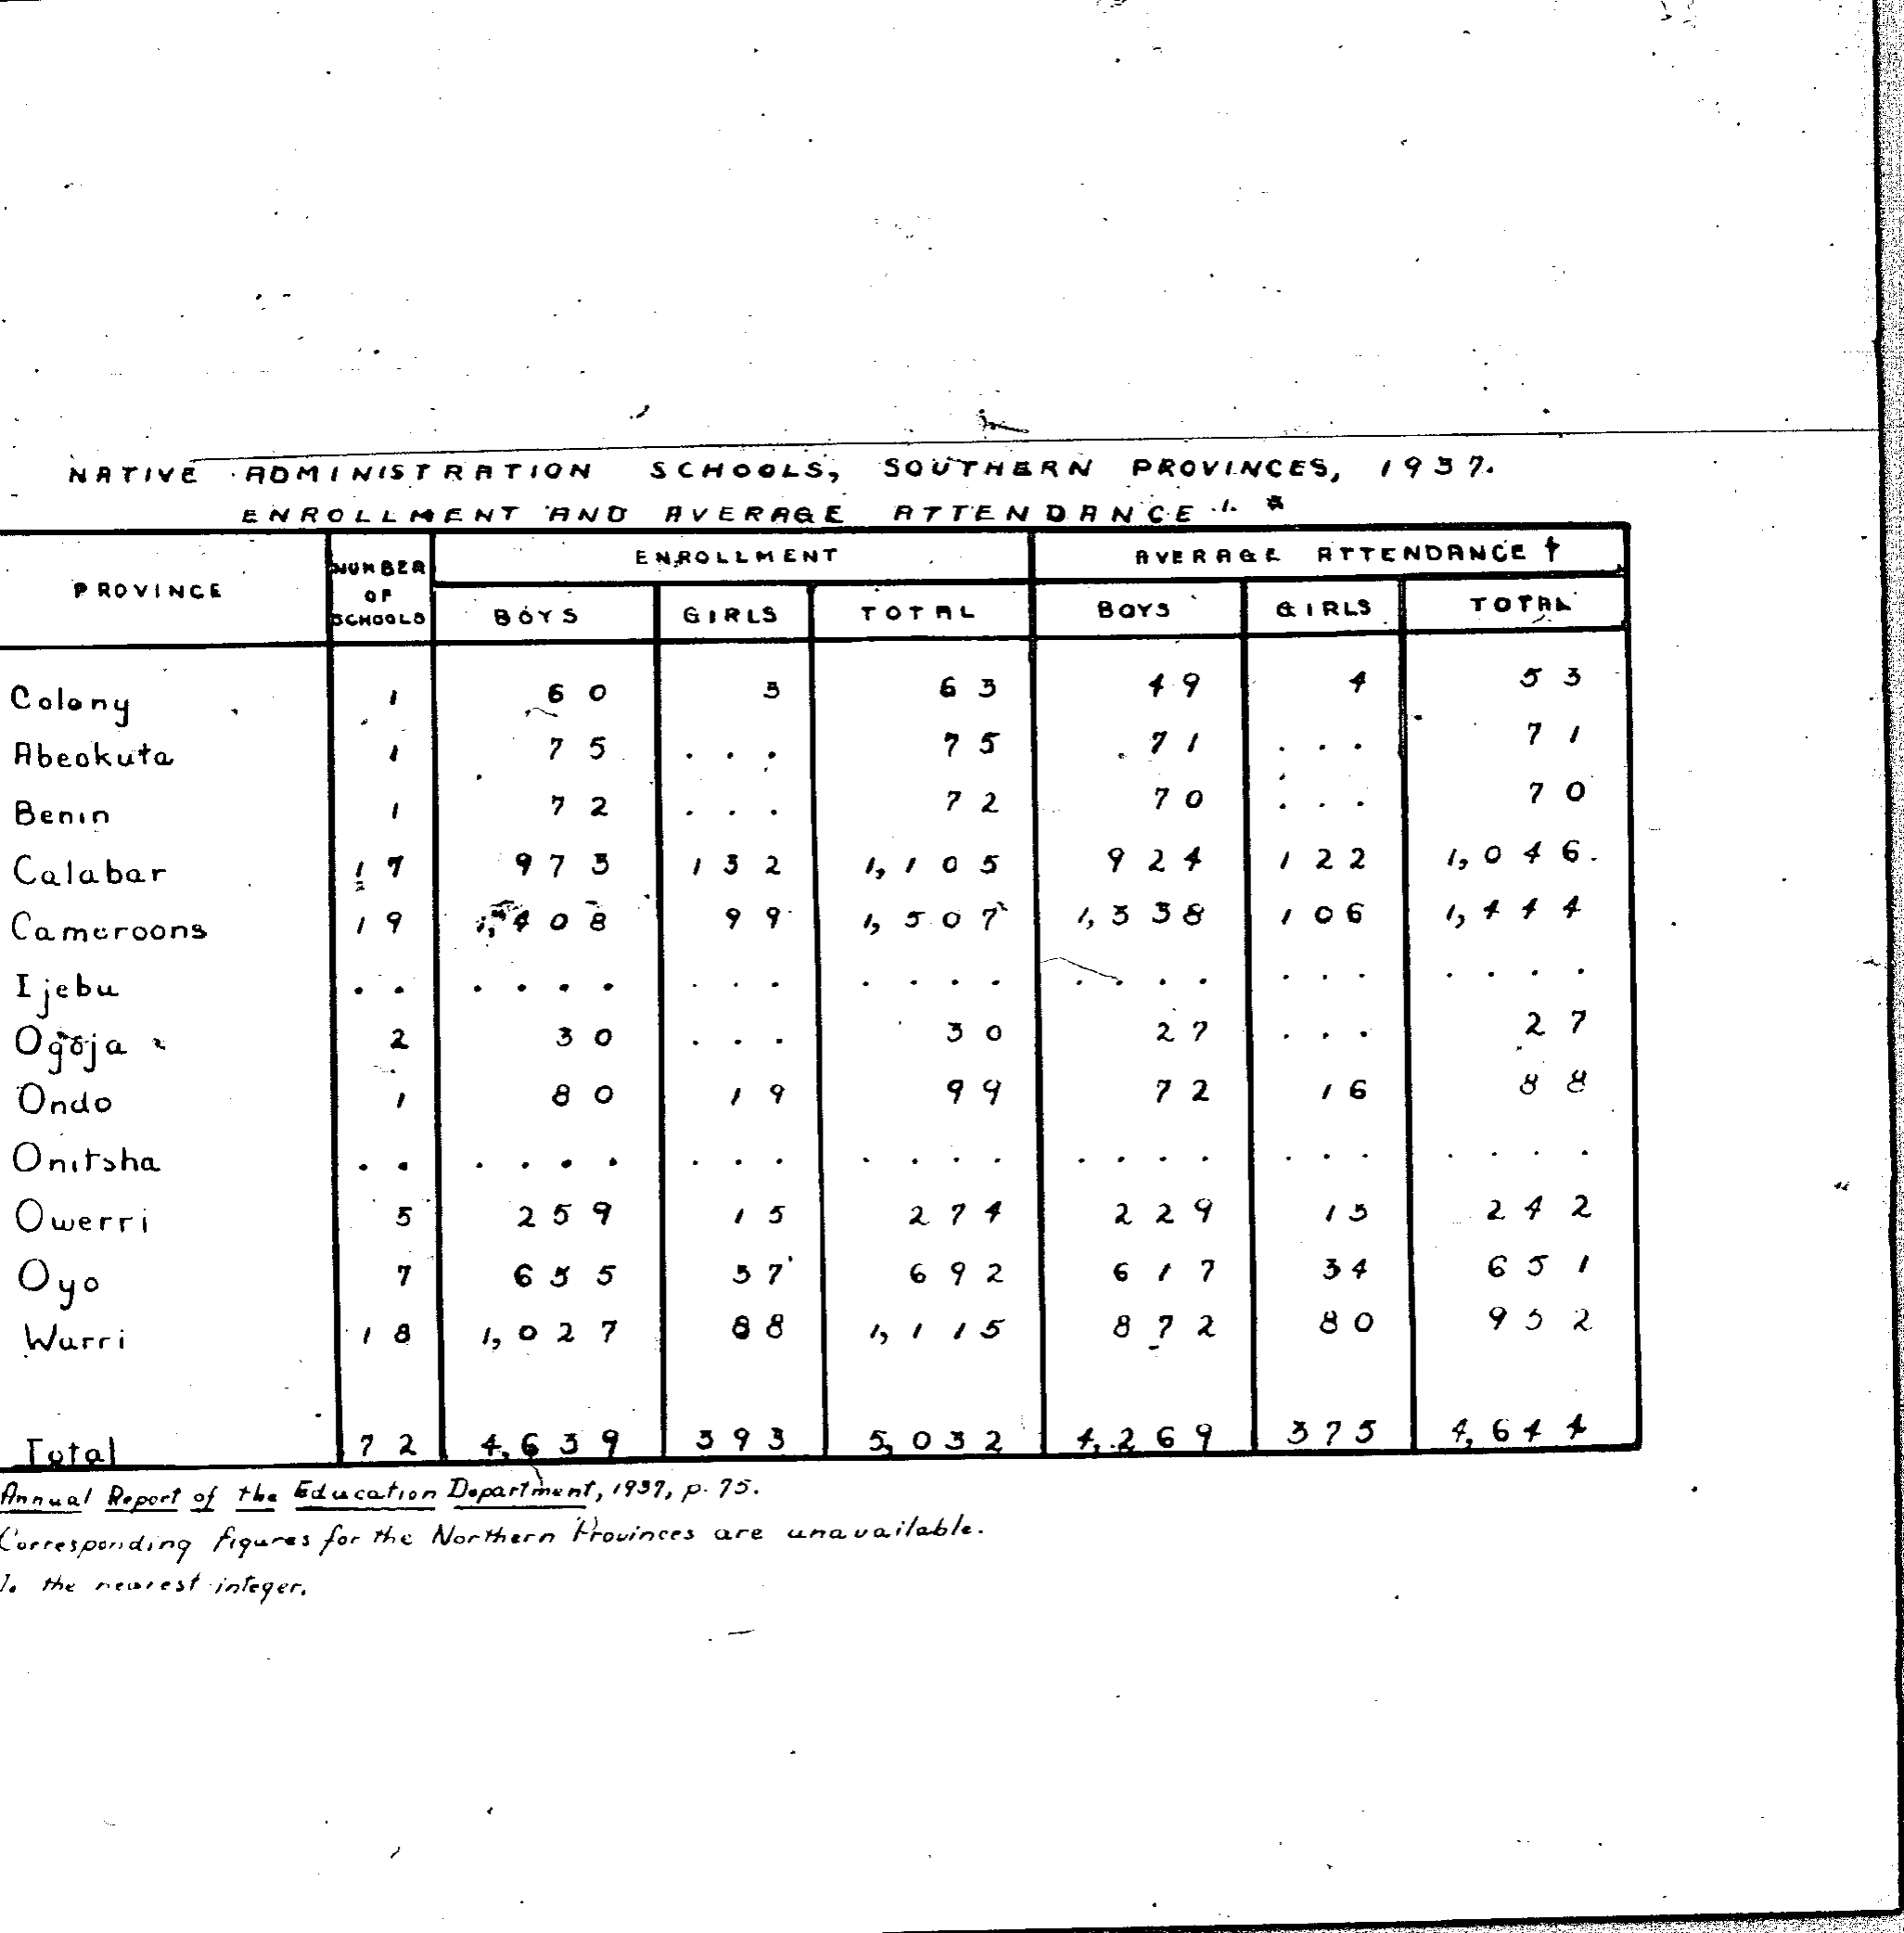 NATIVE ADMINISTRATION SCHOOLS, SOUTHERN PROVINCES, 1937.
ENROLLMENT AND AVERAGE ATTENDANCE 1. *
PROVINCE NUMBER OF SCHOOLS ENROLLMENT AVERAGE ATTENDANCE †
BOYS GIRLS TOTAL BOYS GIRLS TOTAL
Colony 1 60 3 63 49 4 53
Abeokuta 1 75 ... 75 71 ... 71
Benin 1 72 ... 72 70 ... 70
Calabar 17 973 132 1,105 924 122 1,046
Cameroons 19 1,408 99 1,507 1,338 106 1,444
Ijebu .. .... ... .... .... ... ....
Ogoja 2 30 ... 30 27 ... 27
Ondo 1 80 19 99 72 16 88
Onitsha .. .... ... .... .... ... ....
Owerri 5 259 15 274 229 13 242
Oyo 7 655 37 692 617 34 651
Warri 18 1,027 88 1,115 872 80 952
Total 72 4,639 393 5,032 4,269 375 4,644
Annual Report of the Education Department, 1937, p. 75.
Corresponding figures for the Northern Provinces are unavailable.
the nearest integer.